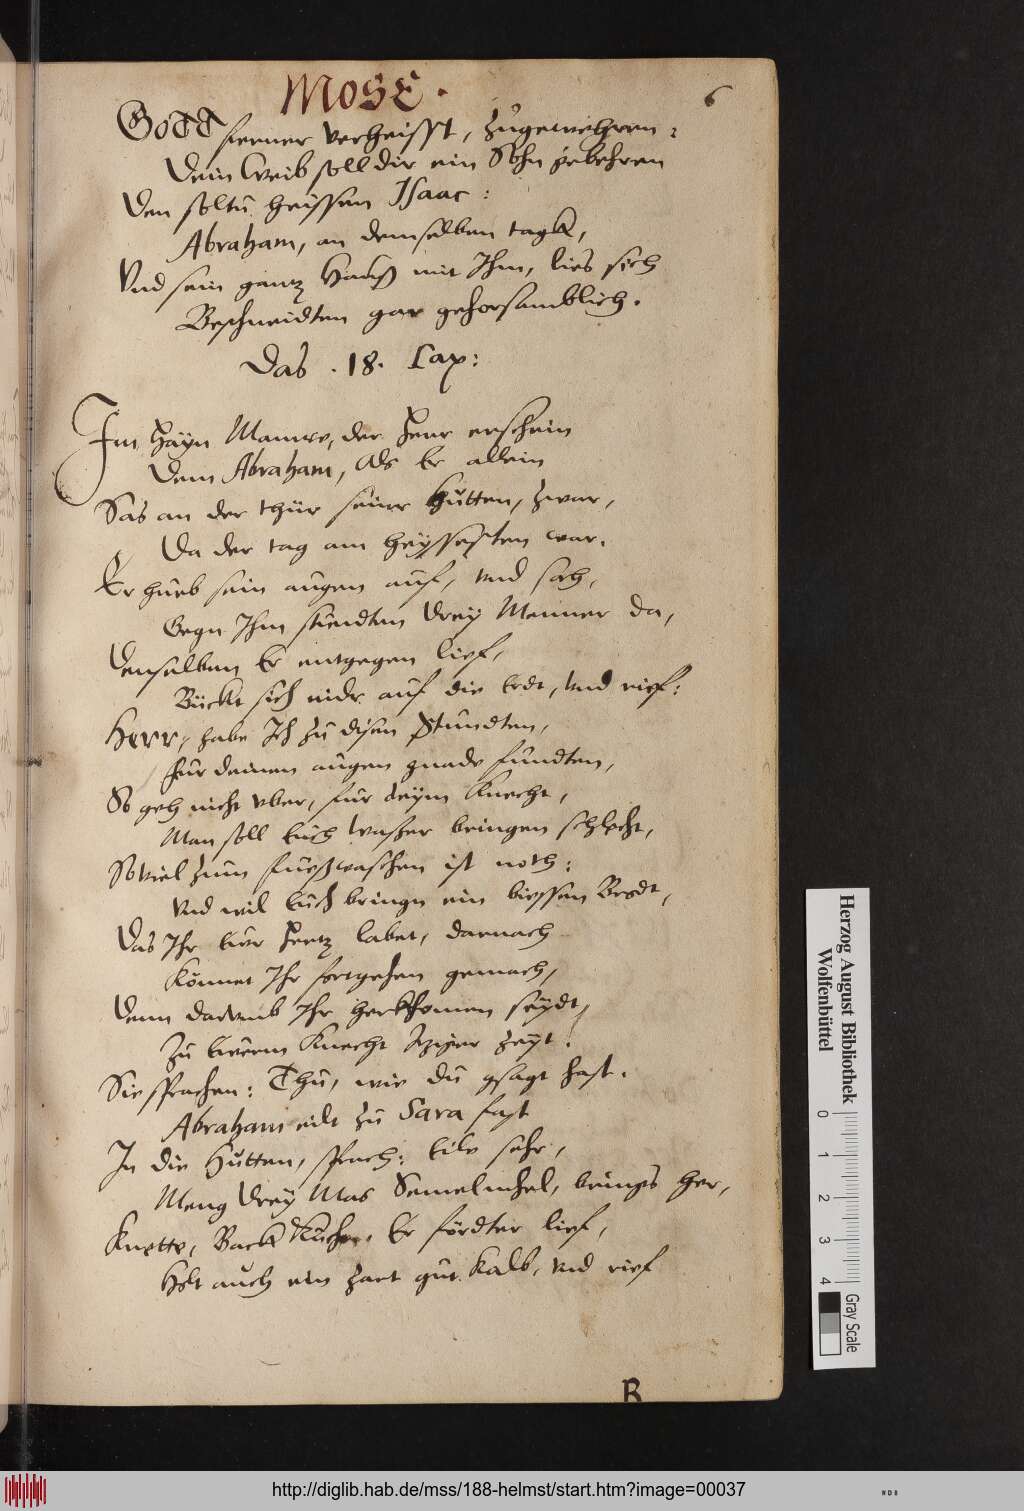 MOSE.
6
GOTT ferner verheisst, zugewehren:
Dein Weib soll dir ein Sohn gebehren
Den soltu heissen Isaac:
Abraham, an demselben tagk,
Vnd sein gantz Hauß mit Ihm, lies sich
Beschneidten gar gehorsamblich.
Das .18. Cap:
Im Hayn Mamre, der Herr erschein
Dem Abraham, Als Er allein
Sas an der thür seinr Hütten, zwar,
Da der tag am heyssesten war.
Er hueb sein augen auf, vnd sah,
Gegn Ihm stuendten Drey Menner da,
Denselben Er entgegen lief,
Bückt sich nidr auf die Erdt, vnd rief:
Herr, habe Ich zu disen Stundten,
für deinen augen gnade fundten,
So geh nicht vber, für deym Knecht,
Man soll Euch Waßer bringen schlecht,
Soviel zum fueßwaschen ist noth:
Vnd wil Euch bringn ein biessen Brodt,
Das Ihr Eur Hertz labet, darnach
Könnet Ihr fortgehen gemach,
Denn darumb Ihr herkhomen seydt,
Zu Ewerm Knecht Zeyt!
Sie sprachen: Thu, wie du gsagt hast.
Abraham eilt zu Sara fast
In die Hütten, sprach: Eile sehr,
Meng Drey Mas Semelmehl, brings her,
Knette, Back Kuchn. Er fördter lief,
Holt auch ein zart gut Kalb, vnd rief
B
Herzog August Bibliothek
Wolfenbüttel
0 1 2 3 4
Gray Scale
http://diglib.hab.de/mss/188-helmst/start.htm?image=00037